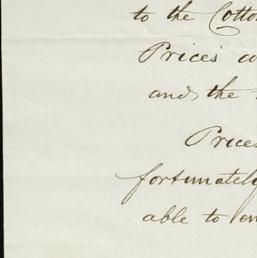 to the
Prices
and the
Prices
fortunately
able to